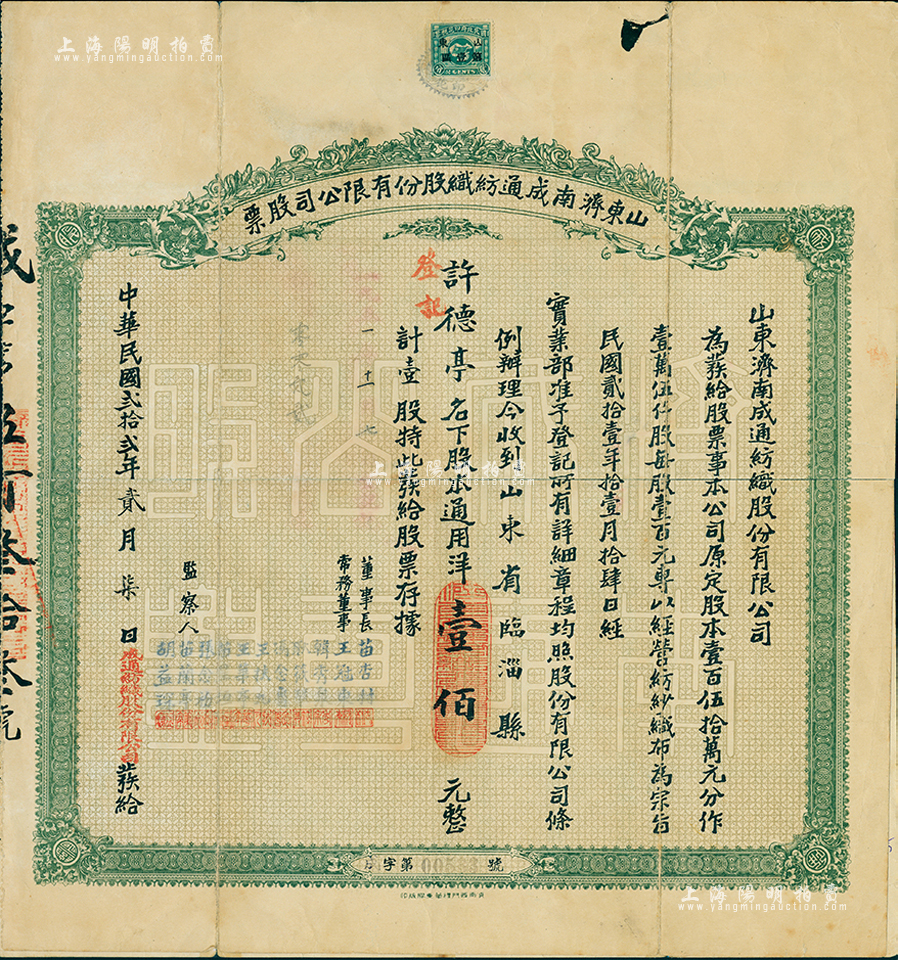 上海陽明拍賣
www.yangmingauction.com
山東
CENTS
山東濟南成通紡織股份有限公司股票
山東濟南成通紡織股份有限公司
為發給股票事本公司原定股本壹百伍拾萬元分作
壹萬伍仟股每股壹百元專以經營紡紗織布為宗旨
民國貳拾壹年拾壹月拾肆日經
實業部准予登記所有詳細章程均照股份有限公司條
例辦理今收到山東省臨淄縣
許德亭名下股本通用洋壹佰元整
計壹股特此發給股票存據
登記
董事長 苗杏村
常務董事 王冠東
監察人
苗蘭亭
胡益琛
中華民國弍拾弍年貳月柒日成通紡織股份有限公司發給
字第005號
上海陽明拍賣
www.yangmingauction.com
上海陽明拍賣
www.yangmingauction.com